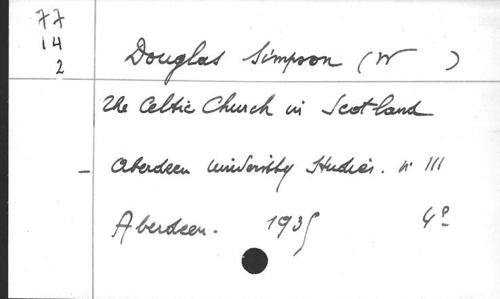 77
14
2
Douglas Simpson (W )
The Celtic Church in Scotland
- Aberdeen University Studies. n° 111
Aberdeen. 1935 4°